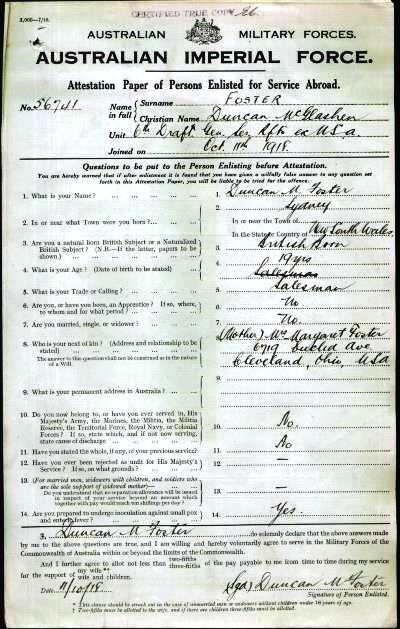 CERTIFIED TRUE COPY
2,000—7/18.
AUSTRALIAN MILITARY FORCES.
AUSTRALIAN IMPERIAL FORCE.
Attestation Paper of Persons Enlisted for Service Abroad.
No. 56741
Name in full
Surname FOSTER
Christian Name Duncan McGlashen
Unit 6th Draft Gen Ser Rfts ex USA
Joined on Oct 11th 1918.
Questions to be put to the Person Enlisting before Attestation.
You are hereby warned that if after enlistment it is found that you have given a wilfully false answer to any question set
forth in this Attestation Paper, you will be liable to be tried for the offence.
1. What is your Name? 1. Duncan M Foster
2. In or near what Town were you born? 2. In or near the Town of Sydney
In the State or Country of New South Wales
3. Are you a natural born British Subject or a Naturalized
British Subject? (N.B.—If the latter, papers to be
shown.) 3. British Born
4. What is your Age? (Date of birth to be stated) 4. 19 yrs
Salesman
5. What is your Trade or Calling? 5. Salesman
6. Are you, or have you been, an Apprentice? If so, where,
to whom and for what period? 6. No
7. Are you married, single, or widower? 7. No.
8. Who is your next of kin? (Address and relationship to be
stated) 8. (Mother) Mrs Margaret Foster
6719 Euclid Ave
Cleveland, Ohio, USA
The answer to this question shall not be construed as in the nature
of a Will.
9. What is your permanent address in Australia? 9.
10. Do you now belong to, or have you ever served in, His
Majesty's Army, the Marines, the Militia, the Militia
Reserve, the Territorial Force, Royal Navy, or Colonial
Forces? If so, state which, and if not now serving,
state cause of discharge 10. No.
11. Have you stated the whole, if any, of your previous service? 11. No
12. Have you ever been rejected as unfit for His Majesty's
Service? If so, on what grounds? 12. —
13. (For married men, widowers with children, and soldiers who
are the sole support of widowed mother)—
Do you understand that no separation allowance will be issued
in respect of your service beyond an amount which
together with pay would reach ten shillings per day? 13. —
14. Are you prepared to undergo inoculation against small pox
and enteric fever? 14. Yes
3. Duncan M Foster do solemnly declare that the above answers made
by me to the above questions are true, and I am willing and hereby voluntarily agree to serve in the Military Forces of the
Commonwealth of Australia within or beyond the limits of the Commonwealth.
And I further agree to allot not less than two-fifths three-fifths of the pay payable to me from time to time during my service
for the support of my wife* wife and children.
Date 11/10/18
(Sgd) Duncan M Foster
Signature of Person Enlisted.
* This clause should be struck out in the case of unmarried men or widowers without children under 18 years of age.
† Two-fifths must be allotted to the wife, and if there are children three-fifths must be allotted.